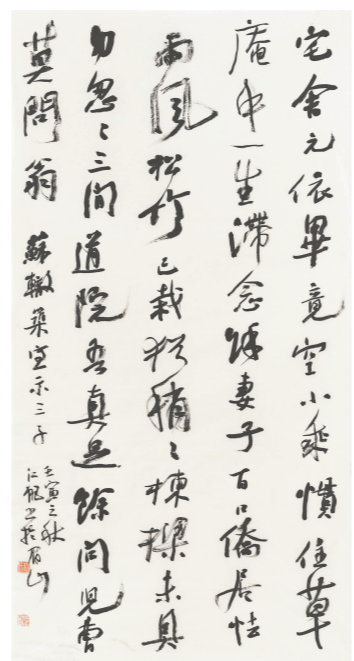 宅舍元依畢竟空小乘慣住草
庵中一生滯念餘妻子百口僑居怯
雨風松竹已栽猶稍〻棟樑未具
勿忽〻三間道院吾真足餘問兒曹
莫問翁 蘇轍築室示三子
壬寅之秋
江帆书於眉山